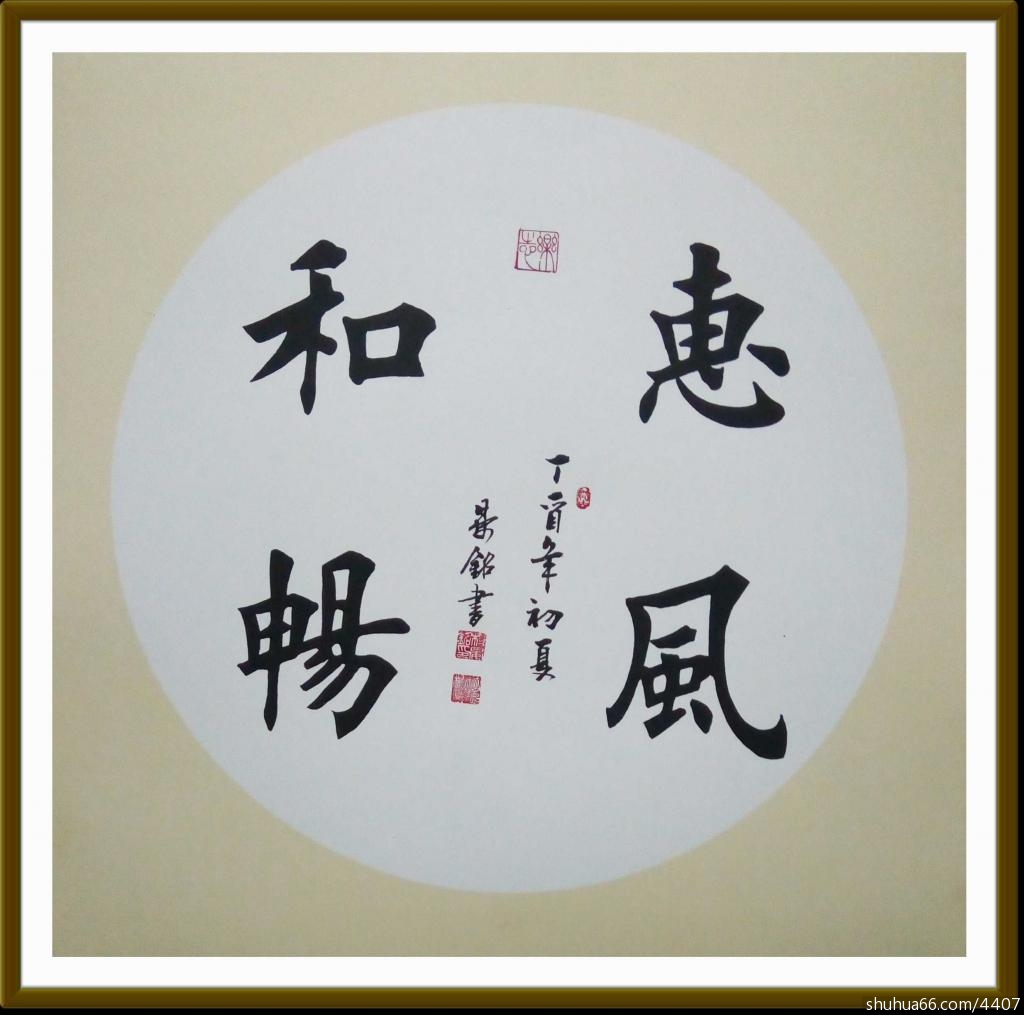 惠風
和暢
丁酉年初夏
鼎銘書
樂志
shuhua66.com/4407